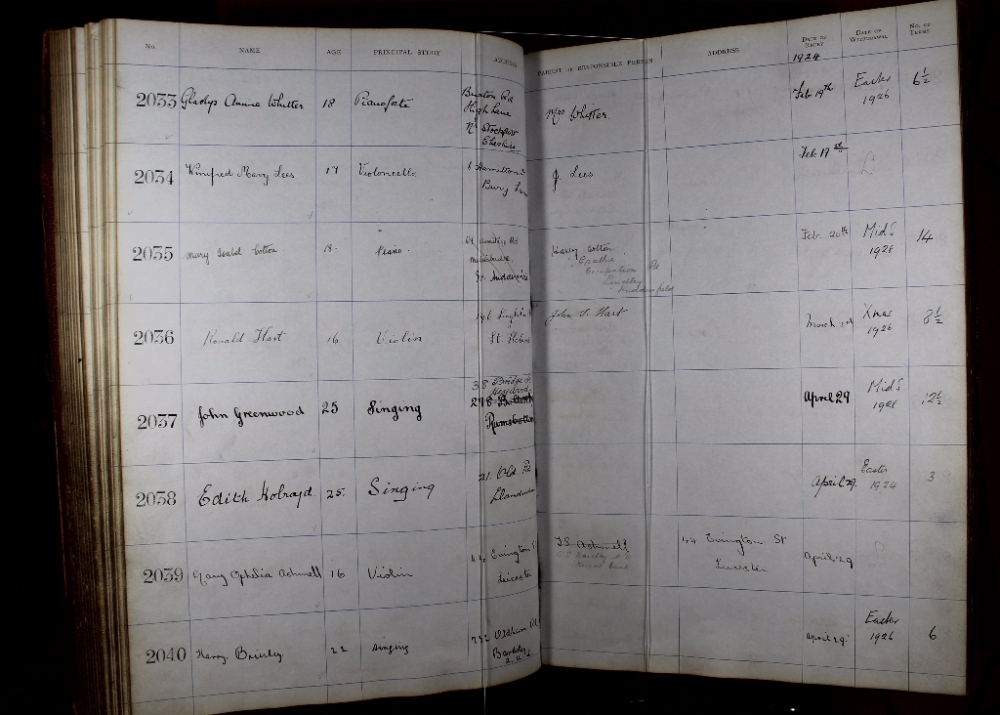 No. NAME AGE PRINCIPAL STUDY ADDRESS PARENT OR RESPONSIBLE PERSON ADDRESS DATE OF ENTRY DATE OF WITHDRAWAL No. OF TERMS
1924
2033 Gladys Annie Whitter 18 Pianoforte Buxton Rd Mrs Whitter Feb 19th Easter 6½
High Lane 1926
Nr Stockport
Cheshire
2034 Winifred Mary Lees 17 Violoncello 8 Hamilton J. Lees Feb 19th L
Bury
2035 Mary Isabel Cotton Piano Harry Cotton Feb. 20th Mids 14
1928
Lindley
Huddersfield
2036 Ronald Hart 16 Violin John S. Hart March Xmas 8½
St. Helens 1926
2037 John Greenwood 25 Singing 38 Bridge St April 29 Mids 12½
Heywood 1928
298 Bolton
Ramsbottom
2038 Edith Holroyd 25 Singing 21 Old Rd April 29 Easter 3
Llandudno 1924
2039 Mary Ophelia Ashwell 16 Violin 44 Evington T.S. Ashwell 44 Evington St April 29
Leicester Leicester
2040 Harry Brierley 22 Singing 732 Oldham Rd April 29 Easter 6
Bardsley 1926